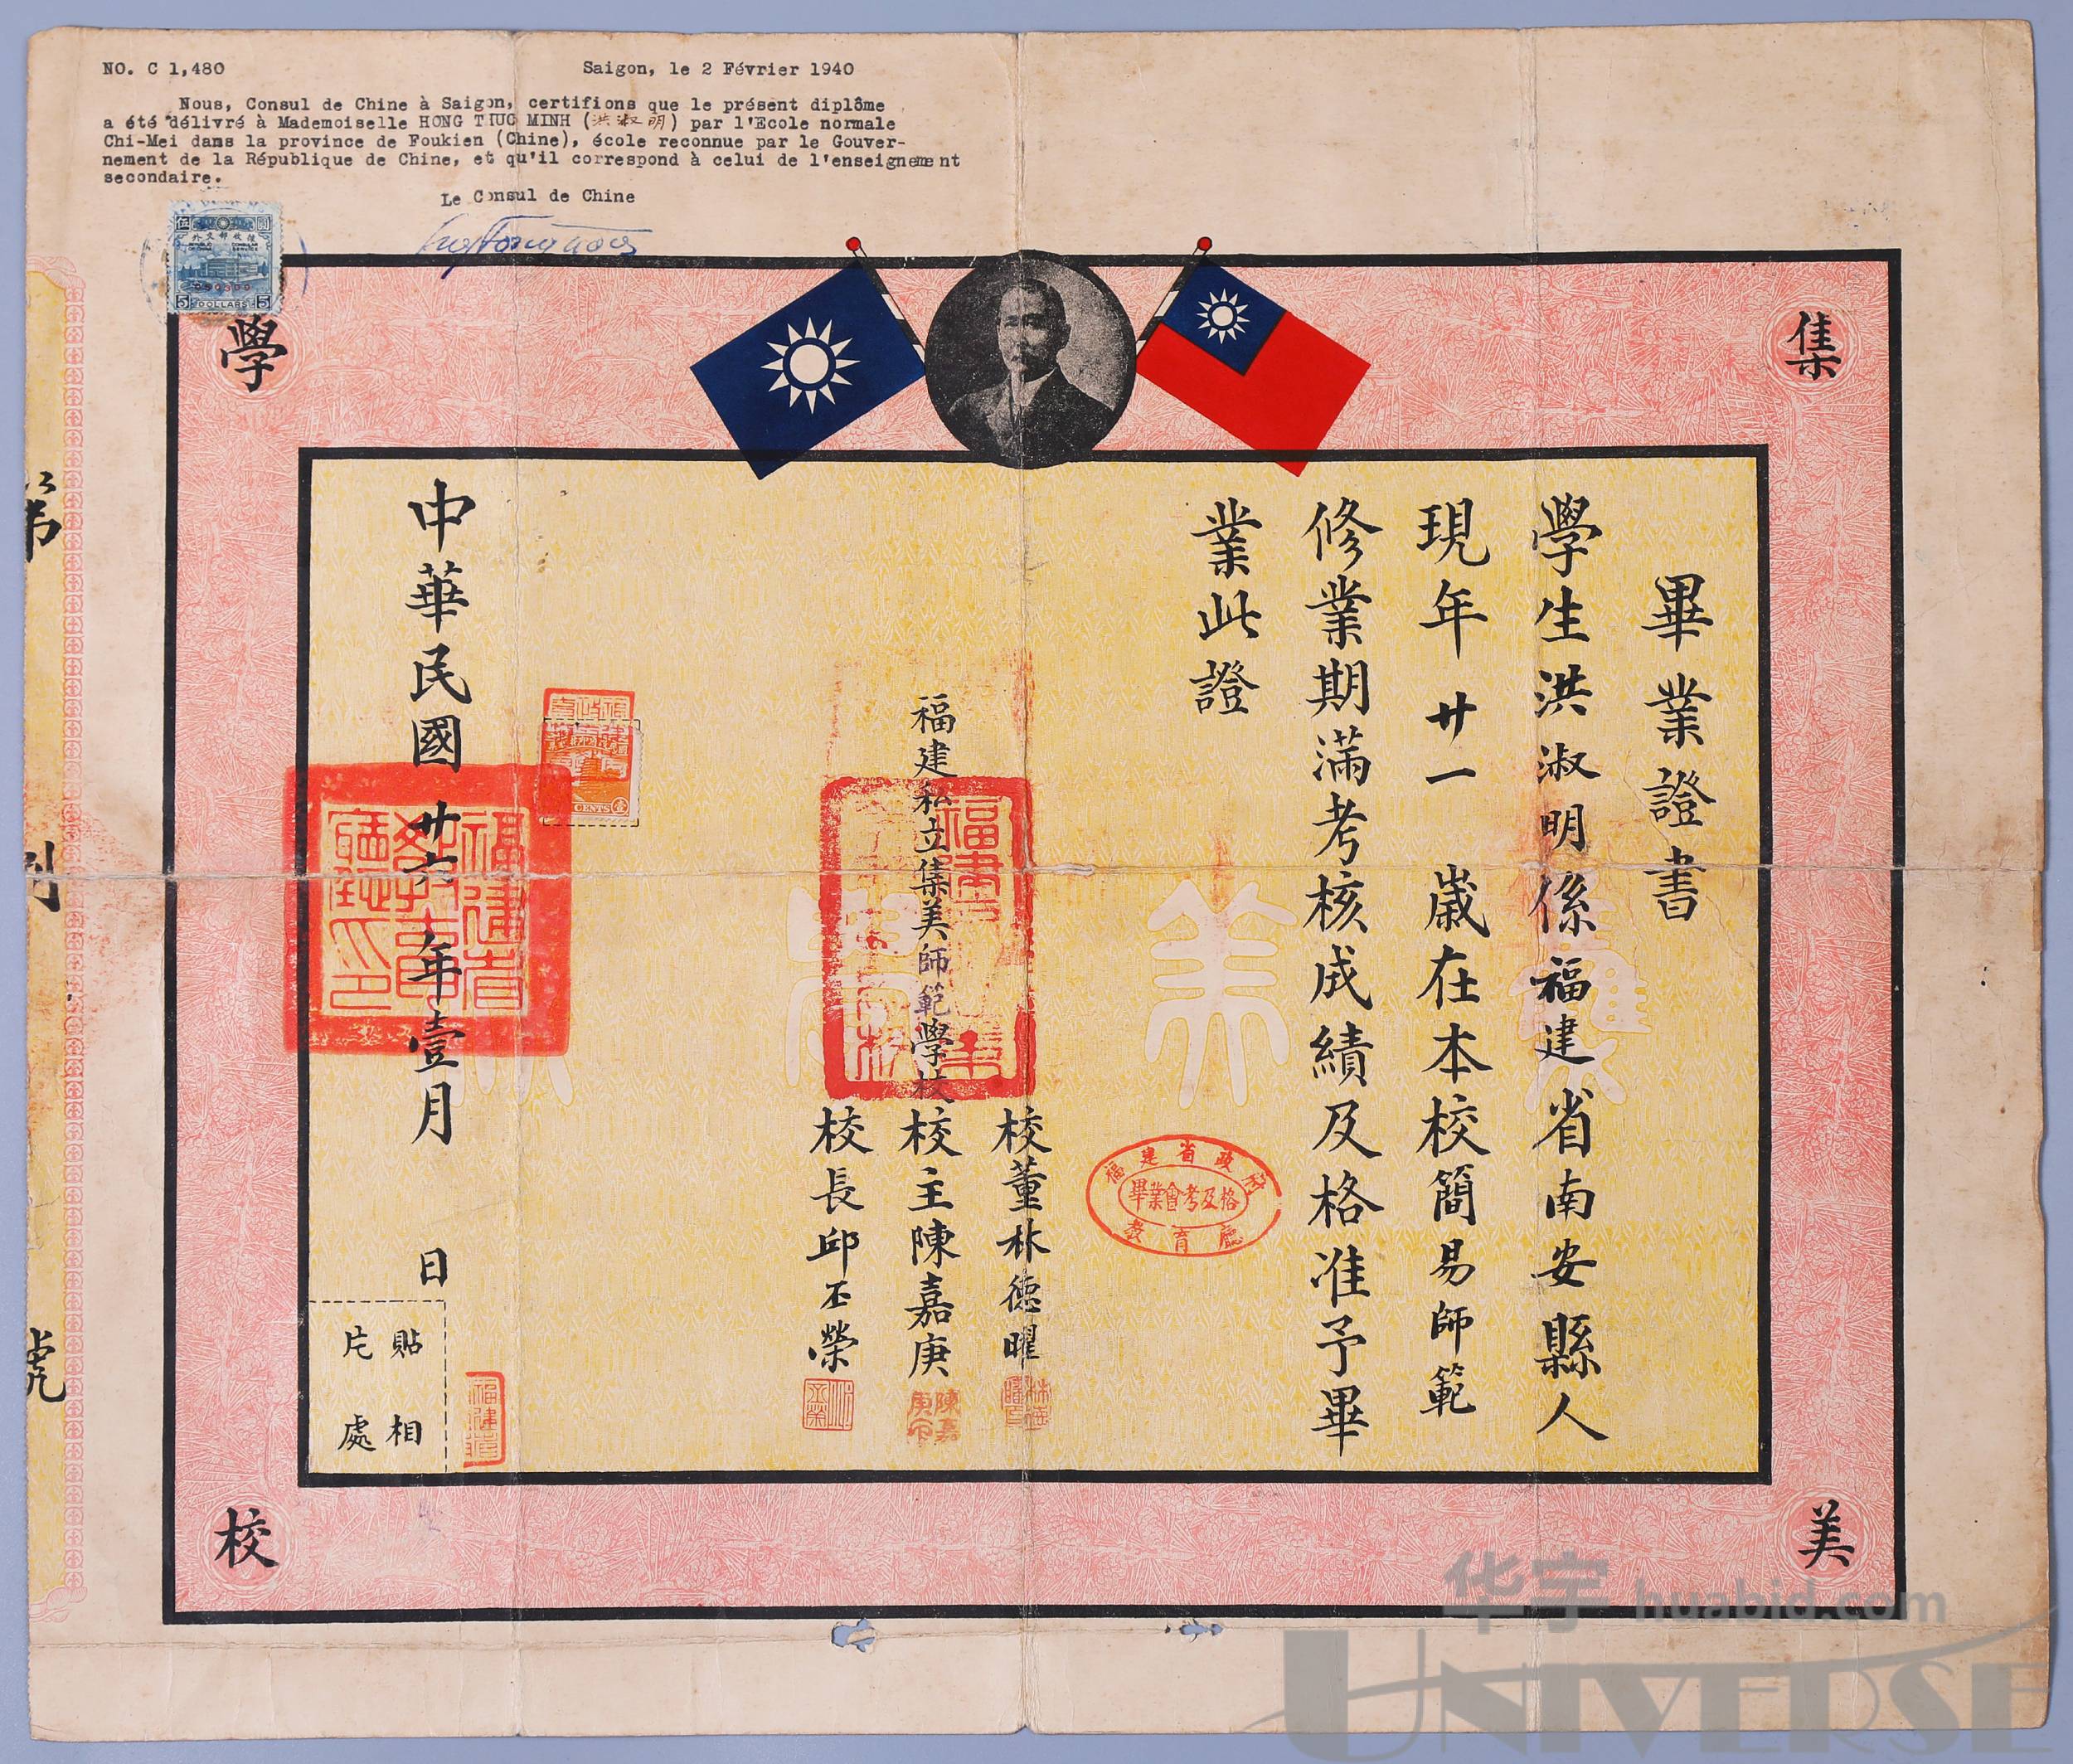 NO. C 1,480
Saigon, le 2 Février 1940
Nous, Consul de Chine à Saigon, certifions que le présent diplôme
a été délivré à Mademoiselle HONG THUC MINH (洪淑明) par l'Ecole normale
Chi-Mei dans la province de Foukien (Chine), école reconnue par le Gouver-
nement de la République de Chine, et qu'il correspond à celui de l'enseignement
secondaire.
Le Consul de Chine
伍 圓
外交部收據
5 DOLLARS 5
集
美
學
校
畢業證書
學生洪淑明係福建省南安縣人
現年廿一歲在本校簡易師範
修業期滿考核成績及格准予畢
業此證
福建省政府
畢業會考及格
教育廳
校董林德曜
福建私立集美師範學校
校主陳嘉庚
陳嘉庚印
校長邱丕榮
中華民國廿六年壹月 日
福建省教育廳印
CENTS 壹
貼相
片處
第
號
华宇 huabid.com
UNIVERSE